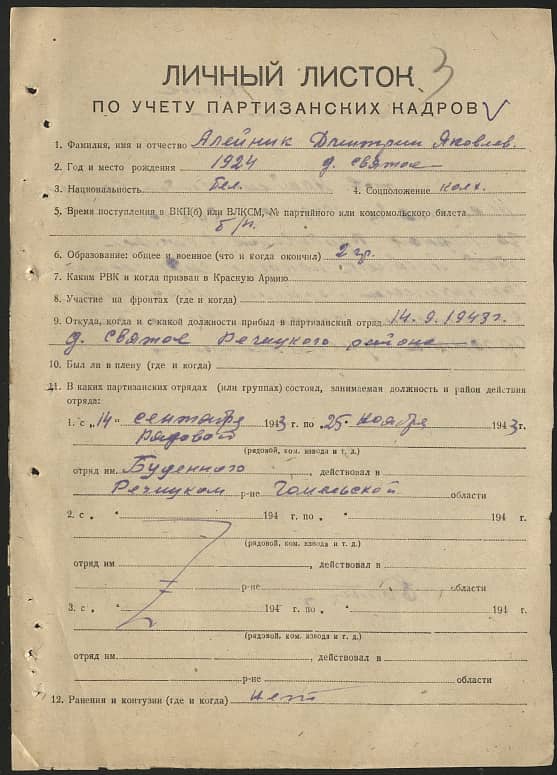 3
ЛИЧНЫЙ ЛИСТОК
ПО УЧЕТУ ПАРТИЗАНСКИХ КАДРОВ
1. Фамилия, имя и отчество Алейник Дмитрий Яковлев.
2. Год и место рождения 1924 д. Святое
3. Национальность бел. 4. Соцположение колх.
5. Время поступления в ВКП(б) или ВЛКСМ, № партийного или комсомольского билета
б/п.
6. Образование: общее и военное (что и когда окончил) 2 гр.
7. Каким РВК и когда призван в Красную Армию
8. Участие на фронтах (где и когда)
9. Откуда, когда и с какой должности прибыл в партизанский отряд 14.9.1943 г.
д. Святое Речицкого района
10. Был ли в плену (где и когда)
11. В каких партизанских отрядах (или группах) состоял, занимаемая должность и район действия
отряда:
1. с „14" сентября 1943 г. по „25. Ноября 1943 г.
Рядовой
(рядовой, ком. взвода и т. д.)
отряд им. Буденного, действовал в
Речицком р-не Гомельской области
2. с „ " 194 г. по „ " 194 г.
(рядовой, ком. взвода и т. д.)
отряд им., действовал в
р-не области
3. с „ " 194 г. по „ " 194 г.
(рядовой, ком. взвода и т. д.)
отряд им., действовал в
р-не области
12. Ранения и контузии (где и когда) нет